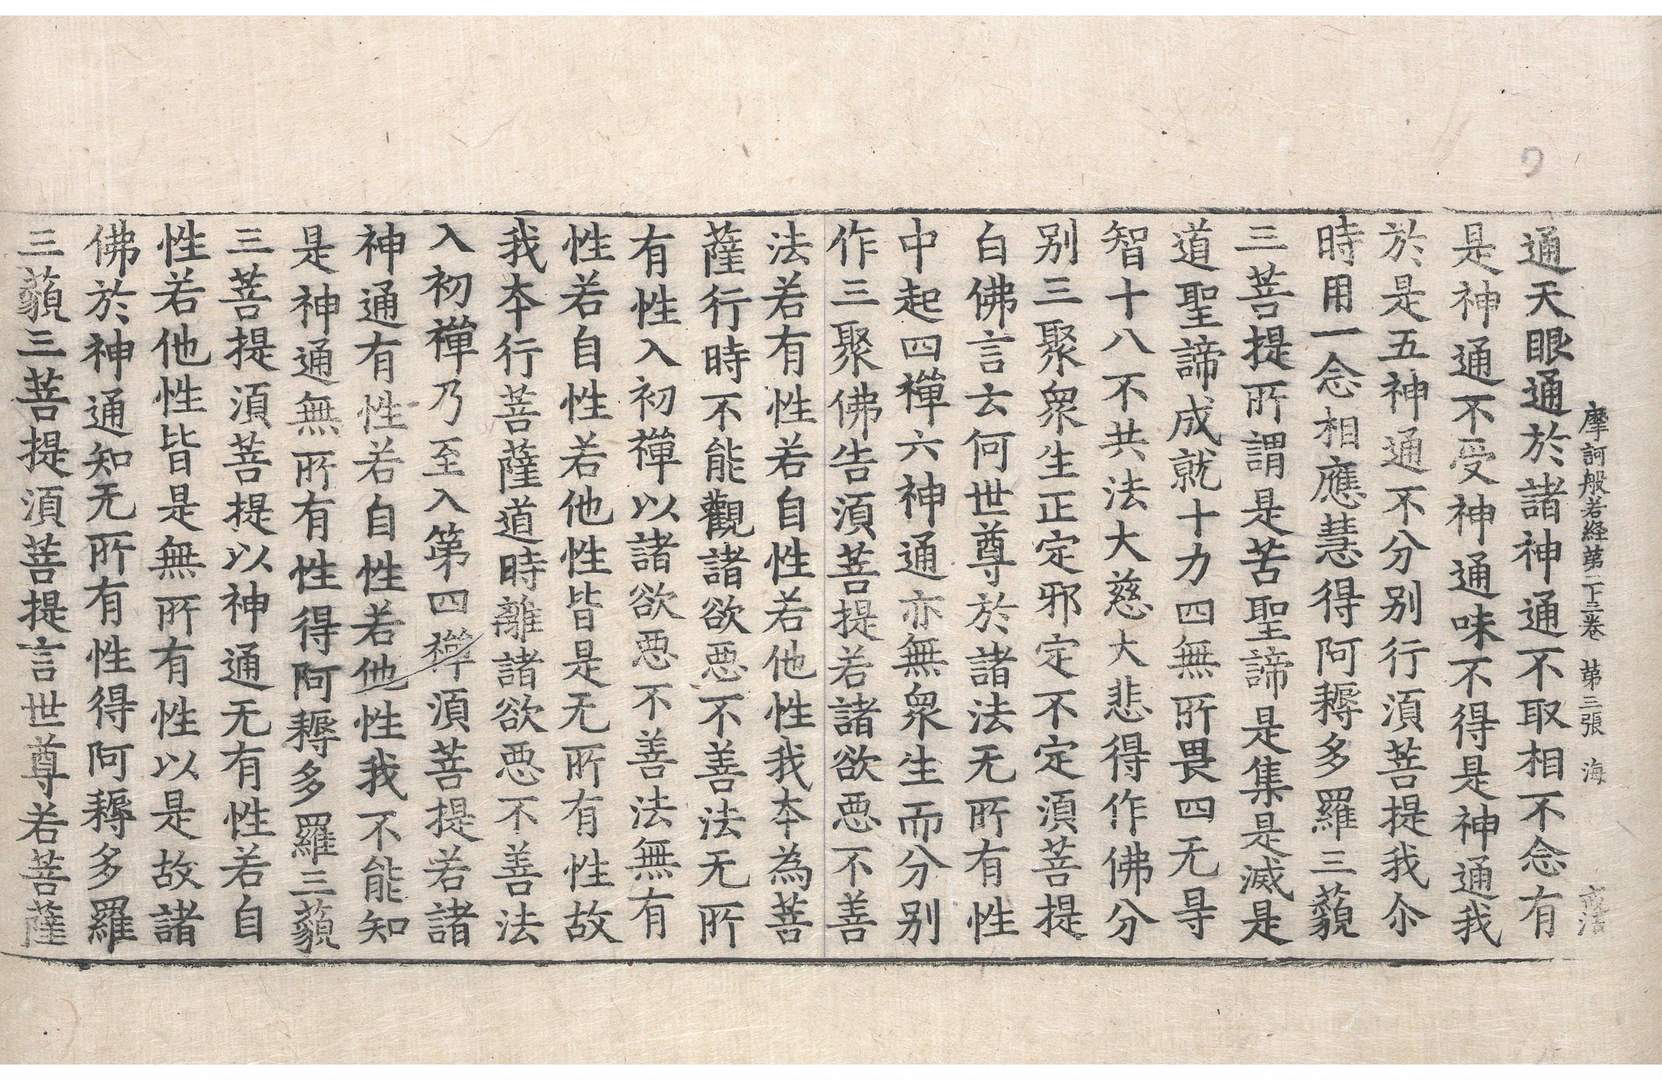 摩訶般若経苐二十三卷 苐三張 海
通天眼通於諸神通不取相不念有
是神通不受神通味不得是神通我
於是五神通不分別行湏菩提我尒
時用一念相應慧得阿耨多羅三藐
三菩提所謂是苦聖諦是集是滅是
道聖諦成就十力四無所畏四无㝵
智十八不共法大慈大悲得作佛分
別三聚衆生正定邪定不定湏菩提
白佛言云何世尊於諸法无所有性
中起四禪六神通亦無衆生而分別
作三聚佛告湏菩提若諸欲惡不善
法若有性若自性若他性我本為菩
薩行時不能觀諸欲惡不善法无所
有性入初禪以諸欲惡不善法無有
性若自性若他性皆是无所有性故
我本行菩薩道時離諸欲惡不善法
入初禪乃至入苐四禪湏菩提若諸
神通有性若自性若他性我不能知
是神通無所有性得阿耨多羅三藐
三菩提湏菩提以神通无有性若自
性若他性皆是無所有性以是故諸
佛於神通知无所有性得阿耨多羅
三藐三菩提湏菩提言世尊若菩薩